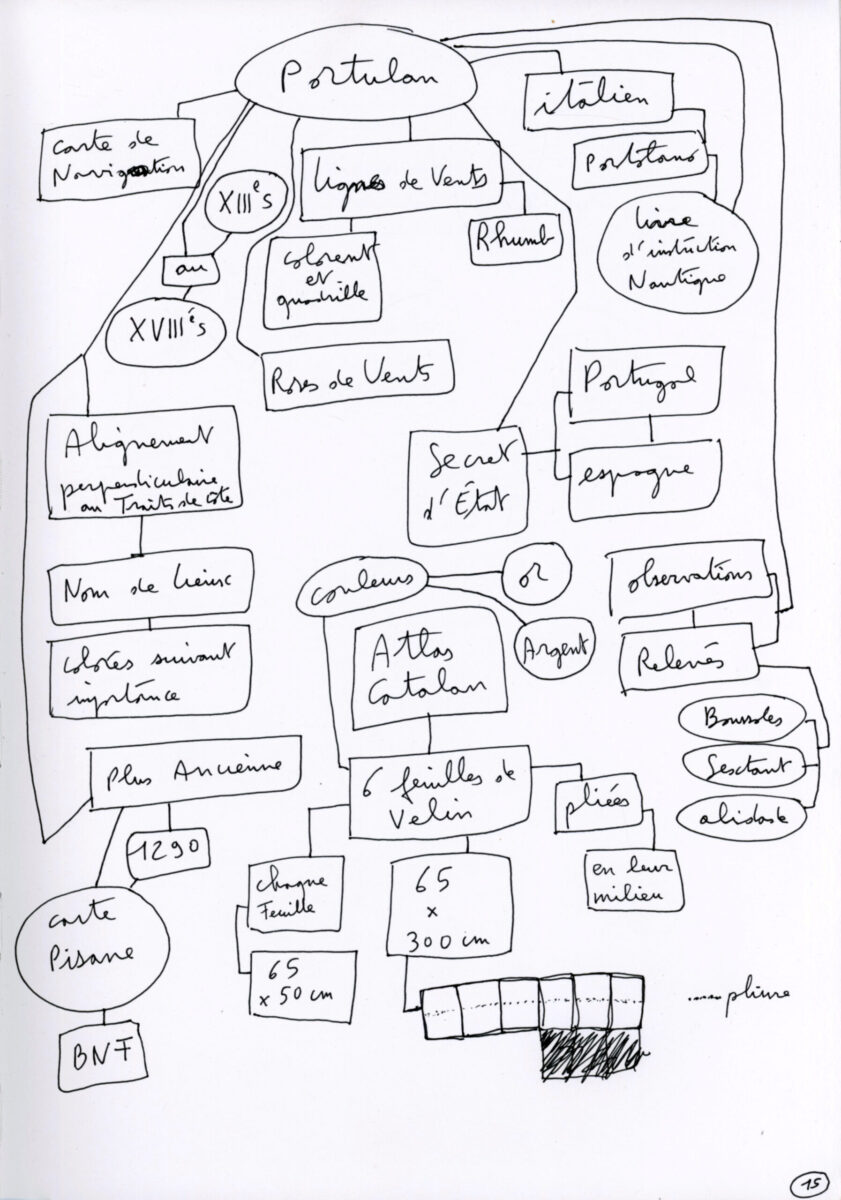 Portulan
italien
Portolano
livre
d'instruction
Nautique
carte de
Navigation
XIIIe s
au
XVIIIe s
Lignes de Vents
Rhumb
colorent
et
quadrille
Roses de Vents
Portugal
espagne
Secret
d'État
Alignement
perpendiculaire
au Traits de côte
Nom de Lieux
colorés suivant
importance
couleurs
or
Argent
observations
Relevés
Boussoles
Sextant
alidade
Atlas
Catalan
6 feuilles de
Velin
pliées
en leur
milieu
Plus Ancienne
1290
carte
Pisane
BNF
chaque
Feuille
65
x 50 cm
65
x
300 cm
...... pliure
15